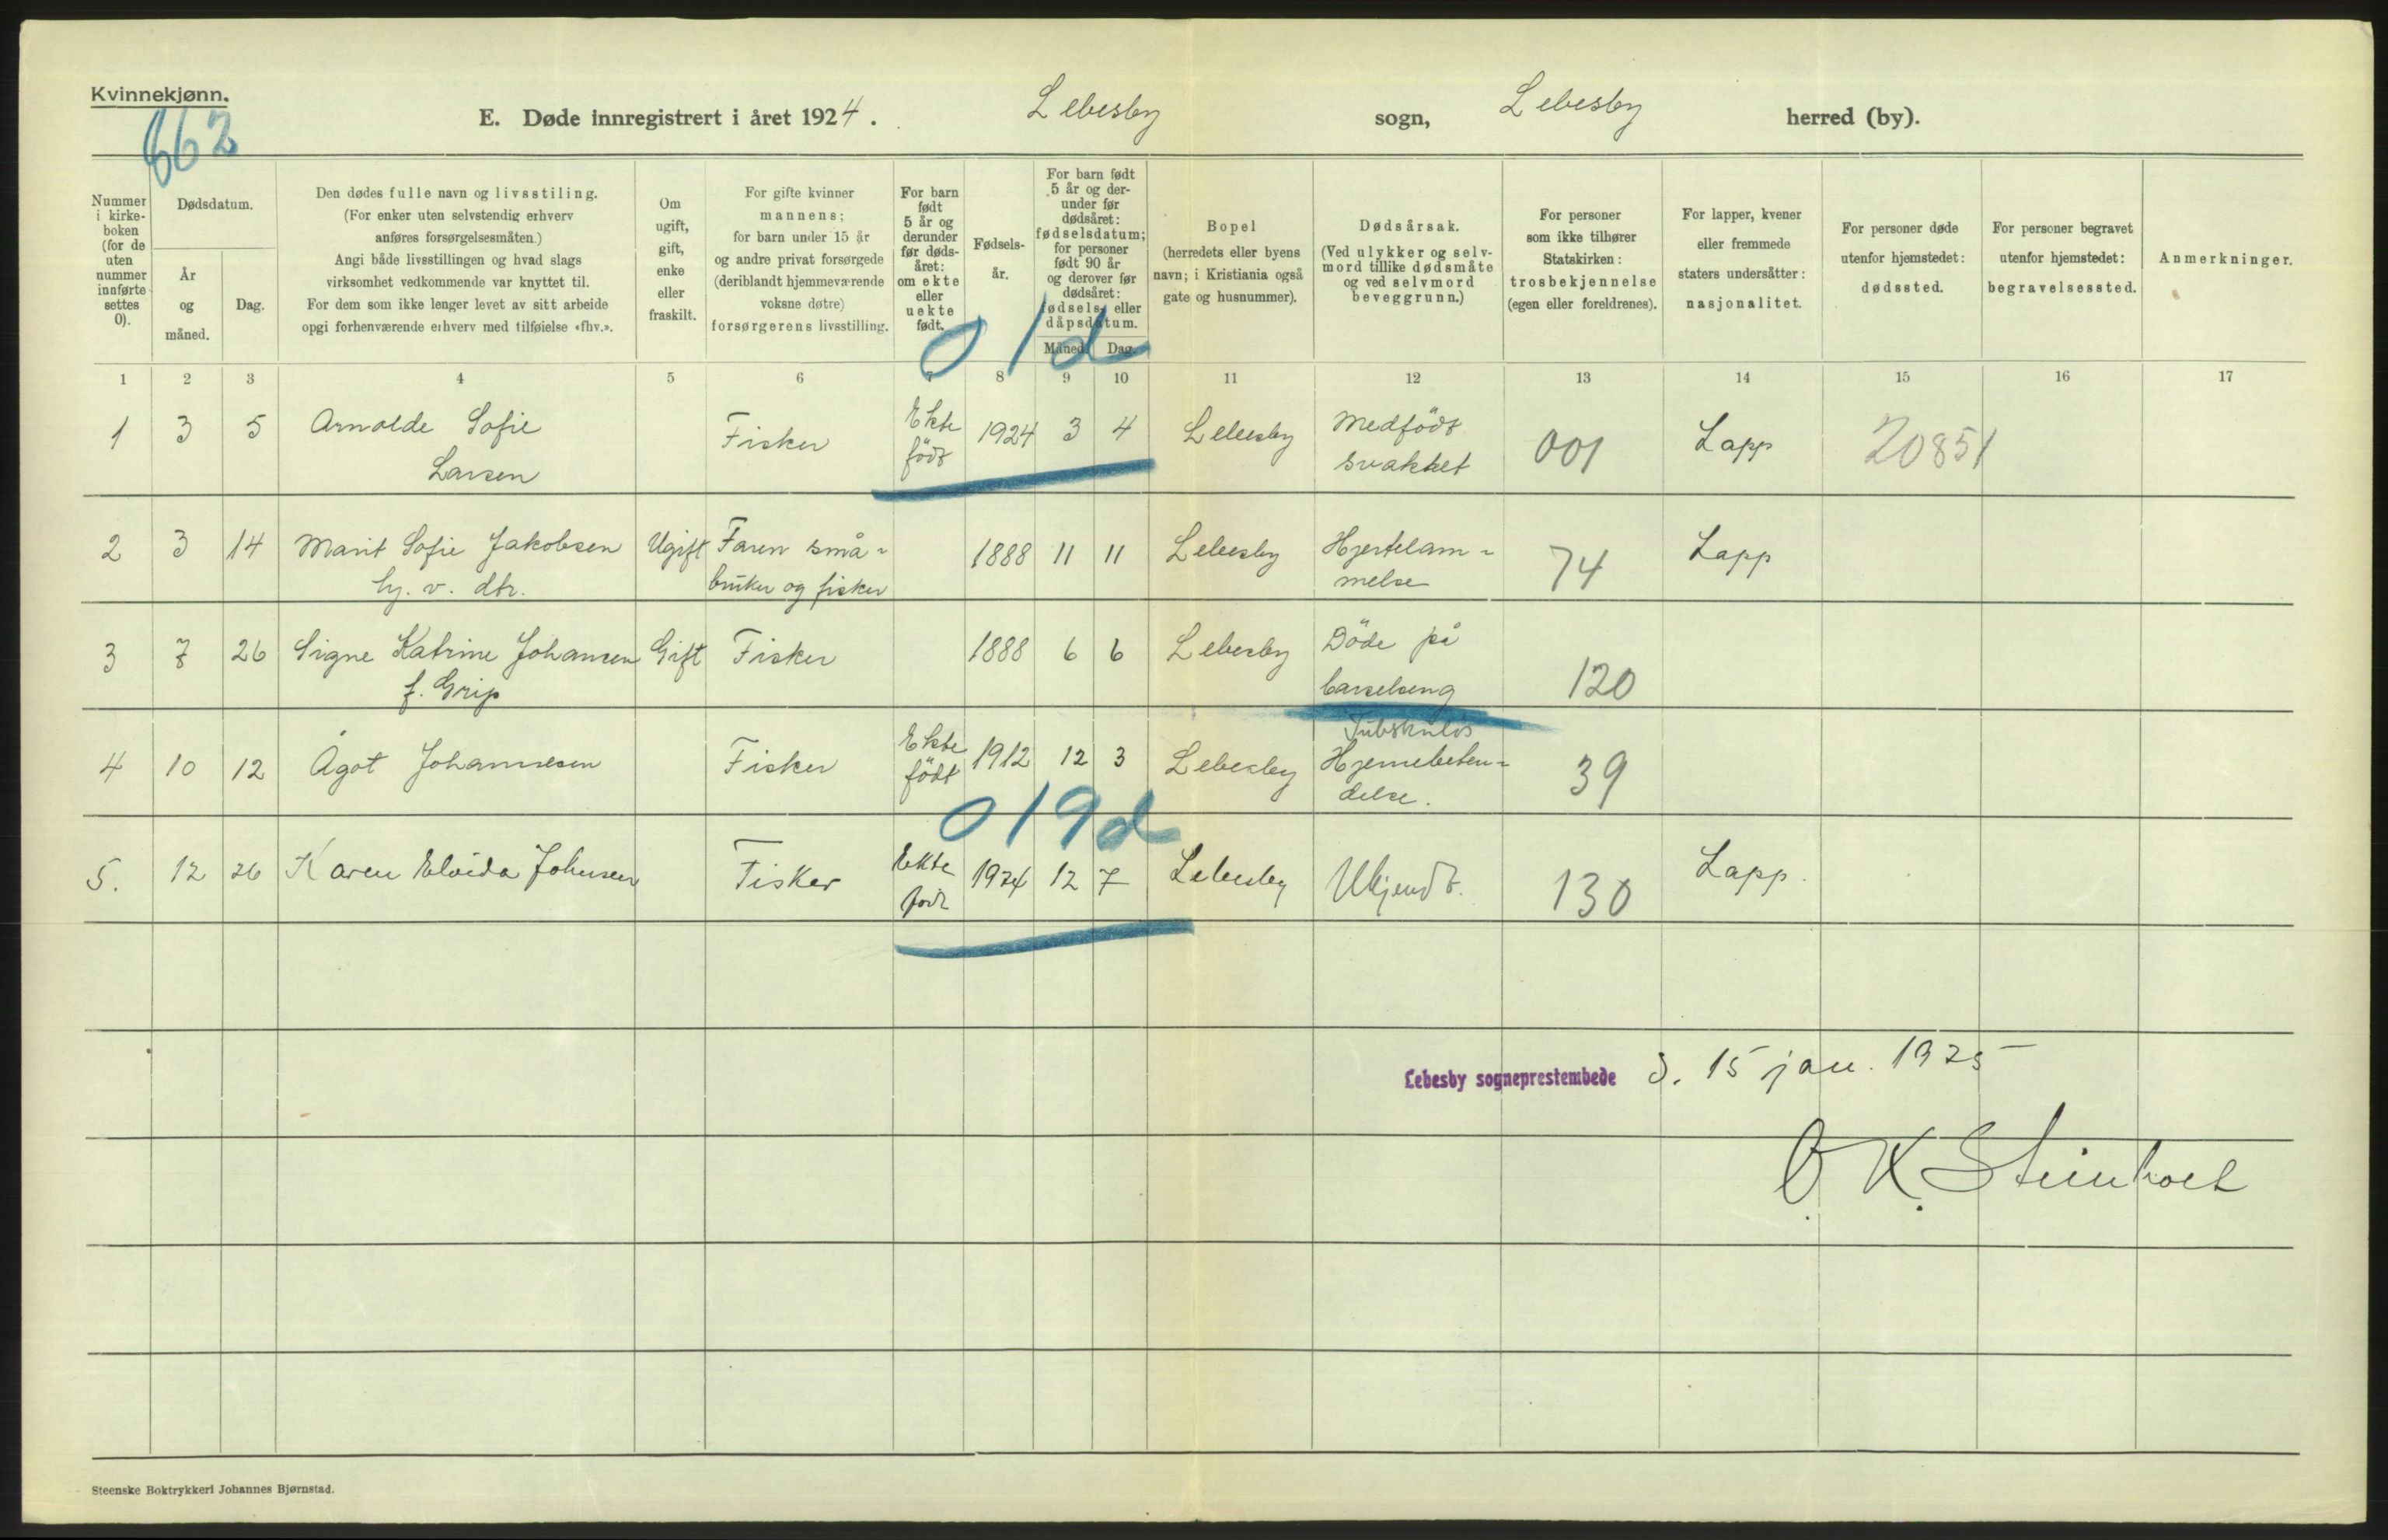 Kvinnekjønn.
662
E. Døde innregistrert i året 1924. Lebesby sogn, Lebesby herred (by).
Nummer
i kirke-
boken
(for de
uten
nummer
innførte
settes
0).
Dødsdatum.
År
og
måned.
Dag.
Den dødes fulle navn og livsstiling.
(For enker uten selvstendig erhverv
anføres forsørgelsesmåten.)
Angi både livsstillingen og hvad slags
virksomhet vedkommende var knyttet til.
For dem som ikke lenger levet av sitt arbeide
opgi forhenværende erhverv med tilføielse «fhv.».
Om
ugift,
gift,
enke
eller
fraskilt.
For gifte kvinner
mannens;
for barn under 15 år
og andre privat forsørgede
(deriblandt hjemmeværende
voksne døtre)
forsørgerens livsstilling.
For barn
født
5 år og
derunder
før døds-
året:
om ekte
eller
uekte
født.
Fødsels-
år.
For barn født
5 år og der-
under før
dødsåret:
fødselsdatum;
for personer
født 90 år
og derover før
dødsåret:
fødsels- eller
dåpsdatum.
Måned.
Dag.
Bopel
(herredets eller byens
navn; i Kristiania også
gate og husnummer).
Dødsårsak.
(Ved ulykker og selv-
mord tillike dødsmåte
og ved selvmord
beveggrunn.)
For personer
som ikke tilhører
Statskirken:
trosbekjennelse
(egen eller foreldrenes).
For lapper, kvener
eller fremmede
staters undersåtter:
nasjonalitet.
For personer døde
utenfor hjemstedet:
dødssted.
For personer begravet
utenfor hjemstedet:
begravelsessted.
Anmerkninger.
01d
1 2 3 4 5 6 7 8 9 10 11 12 13 14 15 16 17
1 3 5 Arnolde Sofie Fisker Ekte 1924 3 4 Lebesby Medfödt 001 Lapp 20851
Larsen födt svakhet
2 3 14 Marit Sofie Jakobsen Ugift Faren små- 1888 11 11 Lebesby Hjertelam- 74 Lapp
hj. v. dtr. bruker og fisker melse
3 7 26 Signe Katrine Johansen Gift Fisker 1888 6 6 Lebesby Döde på 120
f. Grip barselseng
Tuberkulös
4 10 12 Ågot Johannesen Fisker Ekte 1912 12 3 Lebesby Hjernebeten- 39
födt delse.
019d
5. 12 26 Karen Elvida Johnsen Fisker Ekte 1924 12 7 Lebesby Ukjendt. 130 Lapp.
født
Lebesby sogneprestembede d. 15 jan. 1925
O. K. Steinholt
Steenske Boktrykkeri Johannes Bjørnstad.